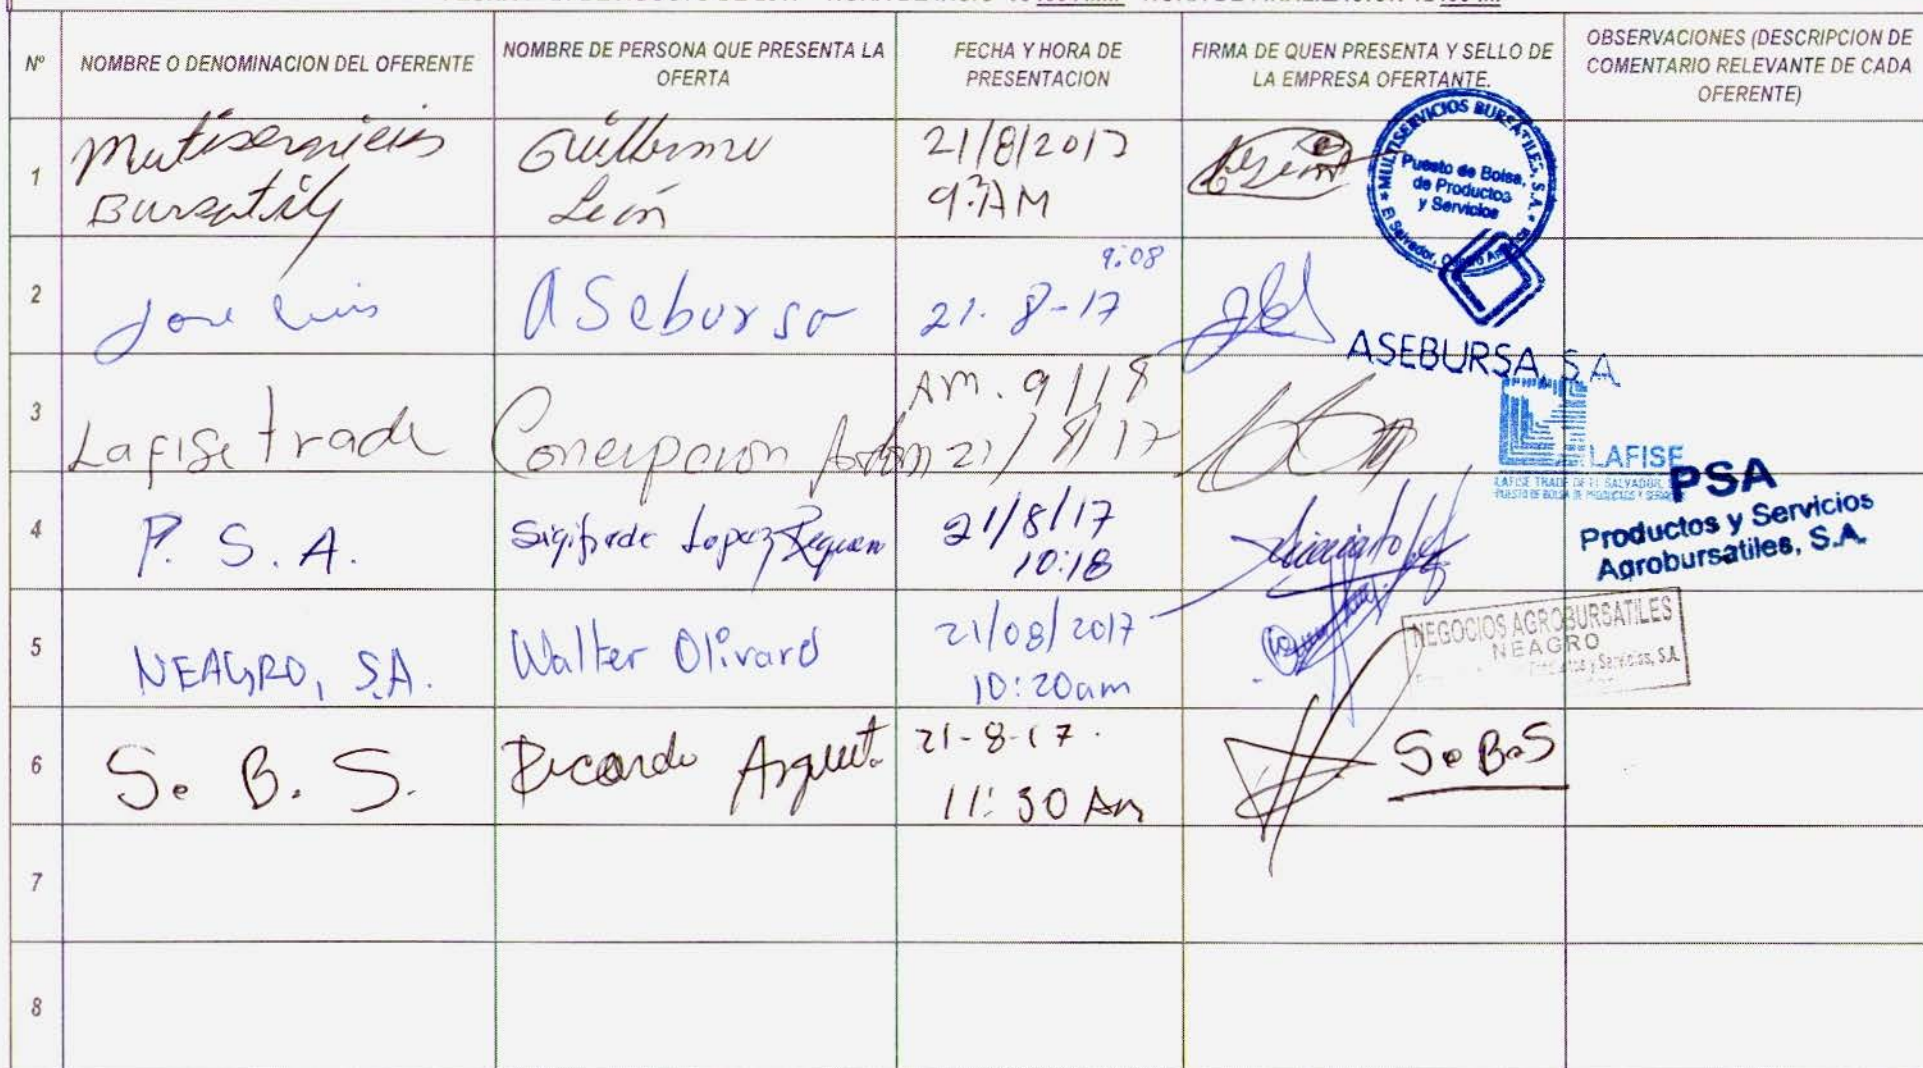 Nº
NOMBRE O DENOMINACION DEL OFERENTE
NOMBRE DE PERSONA QUE PRESENTA LA
OFERTA
FECHA Y HORA DE
PRESENTACION
FIRMA DE QUEN PRESENTA Y SELLO DE
LA EMPRESA OFERTANTE.
OBSERVACIONES (DESCRIPCION DE
COMENTARIO RELEVANTE DE CADA
OFERENTE)
1
Multiservicios
Bursatily
Guillermo
León
21/8/2017
AM
MULTISERVICIOS BURSATILES, S.A.
Puesto de Bolsa,
de Productos
y Servicios
El Salvador, Centro America
2
Jose Luis
Aseburso
9:08
21-8-17
ASEBURSA, S A
3
Lafise trade
Concepcion
AM. 9/18
21/8/17
LAFISE
LAFISE TRADE DE EL SALVADOR,
PUESTO DE BOLSA DE PRODUCTOS Y SERVICIOS
4
P. S. A.
Sigifrede Lopez
21/8/17
10:18
PSA
Productos y Servicios
Agrobursatiles, S.A.
5
NEAGRO, S.A.
Walter Olivard
21/08/2017
10:20am
NEGOCIOS AGROBURSATILES
NEAGRO
Productos y Servicios, S.A.
6
S. B. S.
Ricardo Arguet.
21-8-17.
11:30 Am
S.B.S
7
8